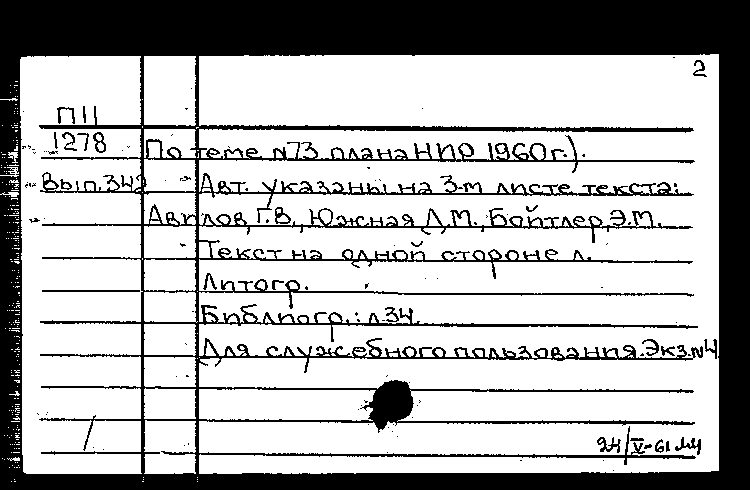 2
П11
1278 По теме №73 плана НИР 1960г.).
Вып.342 Авт. указаны на 3-м листе текста:
Авилов, Г.В., Южная Л.М., Бойтлер, Э.М.
Текст на одной стороне л.
Литогр.
Библиогр.: л.34.
Для служебного пользования. Экз.№4
24/V-61